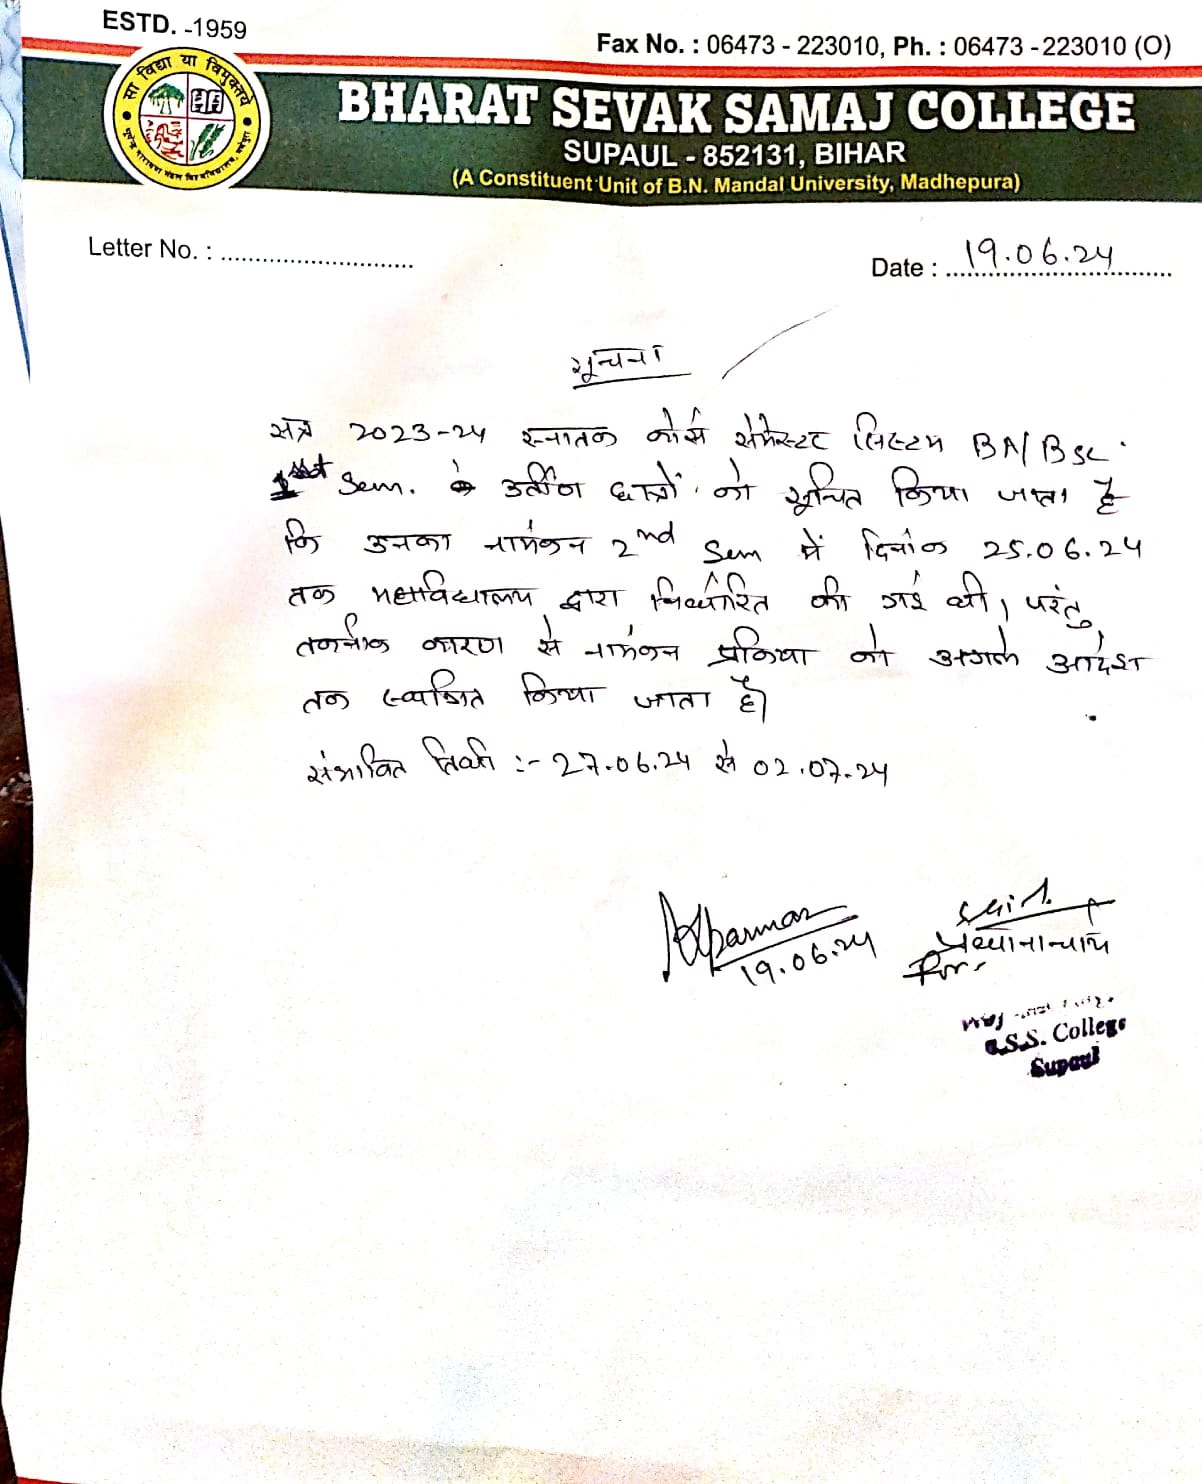 ESTD. -1959
Fax No. : 06473 - 223010, Ph. : 06473 -223010 (O)
सा विद्या या विमुक्तये
BHARAT SEVAK SAMAJ COLLEGE
SUPAUL - 852131, BIHAR
(A Constituent Unit of B.N. Mandal University, Madhepura)
Letter No. : ................................
Date : 19.06.24
सूचना
सत्र 2023-24 स्नातक कोर्स सेमेस्टर सिस्टम BA/BSc
1st Sem. के उर्तीण छात्रों को सूचित किया जाता है
कि उनका नामंकन 2nd Sem में दिनांक 25.06.24
तक महाविद्यालय द्वारा निर्धारित की गई थी, परंतु
तकनीक कारण से नामंकन प्रक्रिया को अगले आदेश
तक स्थगित किया जाता है।
संभावित तिथि :- 27.06.24 से 02.07.24
19.06.24
प्रधानाचार्य
B.S.S. College
Supaul